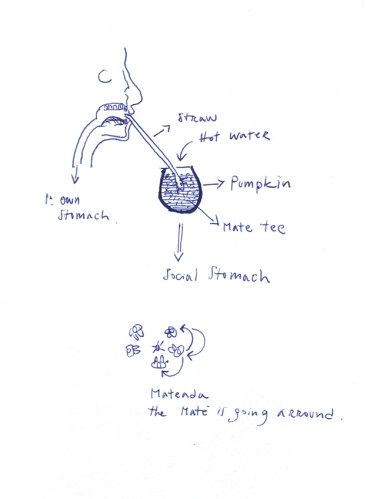 Straw
Hot water
Pumpkin
Mate tee
1: own
Stomach
Social Stomach
Mateada
the Mate is going arround.